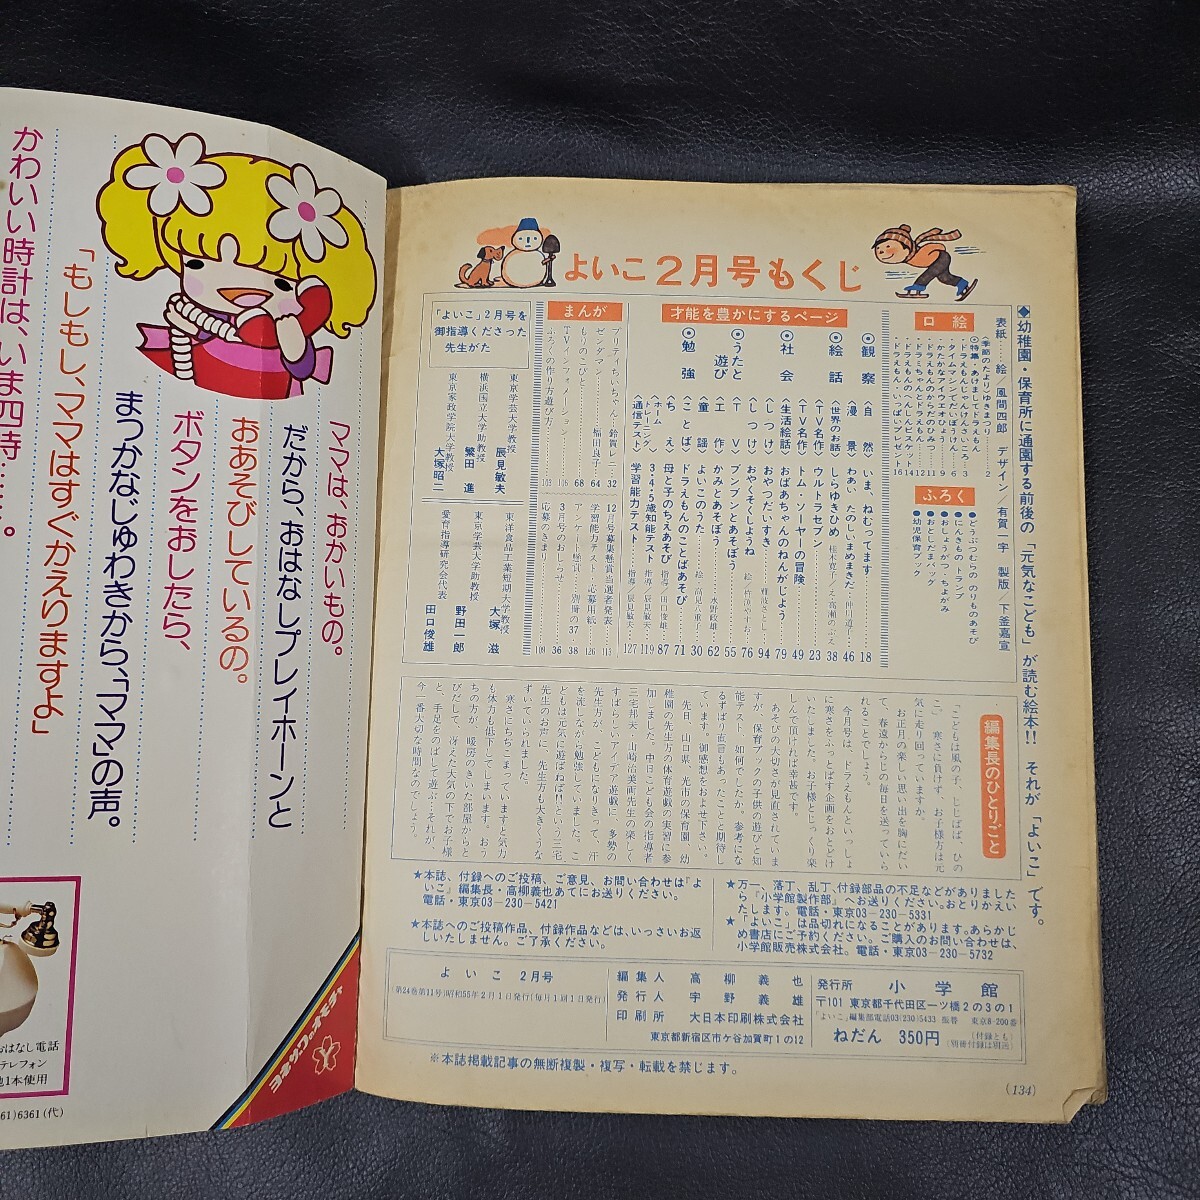 よいこ2月号もくじ
◆幼稚園・保育所に通園する前後の「元気なこども」が読む絵本!! それが「よいこ」です。
表紙……絵/風間四郎 デザイン/有賀一字 製版/下釜嘉宣
口絵
〈季節のたより〉ゆきまつり……2
ドラえもんじゃんけんさいころ…3
かたかなアイウエオひょう…9
ドラえもんのからだのひみつ…11
ドラミちゃんとドラえもん…12
ドラえもんのへんしんビスケット…14
ドラえもん・いっぱいプレゼント…16
ふろく
●どうぶつむらの のりものあそび
●にんきもの トランプ
●おしょうがつ ちよがみ
●おとしだまバッグ
●幼児保育ブック
才能を豊かにするページ
◎観察
〈自然〉いま、ねむってます……18
〈漫景〉わあい たのしいまめまきだ…46
◎絵話
〈世界のお話〉しらゆきひめ……38
〈TV名作〉ウルトラセブン……23
〈TV名作〉トム・ソーヤーの冒険……49
◎社会
〈生活絵話〉おばあちゃんのねんがじょう……79
〈しつけ〉おやつだいすき……94
〈しつけ〉おやくそくしようね……76
◎うたと遊び
〈TV〉ブンブンとあそぼう……55
〈工作〉かみとあそぼう……62
〈童謡〉よいこのうた……30
◎勉強
〈ことば〉ドラえもんのことばあそび……71
〈ちえ〉母と子のちえあそび 指導/田口俊雄…87
〈ホームトレーニング〉3・4・5歳知能テスト 指導/辰見敏夫…119
〈通信テスト〉学習能力テスト……指導/辰見敏夫…127
まんが
プリティちいちゃん……鈴賀レニ…32
ゼンダマン……64
もりのこびと……稲田良子…68
TVインフォメーション……116
ふろくの作り方遊び方……103
12月号募集懸賞当選者発表…113
学習能力テスト応募用紙…126
アンケート懸賞……38
3月号のおしらせ……36
応募のきまり……109
「よいこ」2月号を
御指導くださった
先生がた
東京学芸大学教授 辰見敏夫
横浜国立大学助教授 繁田進
東京家政学院大学教授 大塚昭二
東洋食品工業短期大学教授 大塚滋
東京学芸大学助教授 野田一郎
愛育指導研究会代表 田口俊雄
編集長のひとりごと
「こどもは風の子、じじばば、ひの
こ」 寒さに負けず、お子様方は元
気に走り回っていますか。
お正月の楽しい思い出を胸にだい
て、春遠からじの毎日を送っていら
れることでしょう。
今月号は、ドラえもんといっしょ
に寒さをふっとばす企画をおとどけ
いたしました。お子様とじっくり楽
しんで頂ければ幸甚です。
あそびの大切さが見直されていま
すが、保育ブックの子供の遊びと知
能テスト、如何でしたか。参考にな
るずばり直言もあったことと期待し
ています。御感想をおよせ下さい。
先日、山口県、光市の保育園、幼
稚園の先生方の体育遊戯の実習に参
加しました。中日こども会の指導者
三宅邦夫・山崎治美両先生の楽しく
すばらしいアイデア遊戯に、多勢の
先生方が、こどもになりきって、汗
を流しながら勉強していました。こ
どもは元気に遊ばねば!!という三宅
先生のお声に、先生方も大きくうな
ずいていられました。
寒さにちぢこまっていますと気力
も体力も低下してしまいます。おう
ちの方が、暖房のきいた部屋からと
びだして、冴えた大気の下でお子様
と、手足をのばして遊ぶ…それが、
今一番大切な時間なのでしょう。
★本誌、付録へのご投稿、ご意見、お問い合わせは『よ
いこ』編集長・高柳義也あてにお送りください。
電話・東京03-230-5421
★本誌へのご投稿作品、付録作品などは、いっさいお返
しいたしません。ご了承ください。
★万一、落丁、乱丁、付録部品の不足などがありました
ら「小学館製作部」へお送りください。おとりかえい
たします。電話・東京03-230-5331
★「よいこ」は品切れになることがあります。あらかじ
め書店にご予約ください。ご購入のお問い合わせは、
小学館販売株式会社。電話・東京03-230-5732
よいこ 2月号
(第24巻第11号)昭和55年2月1日発行(毎月1回1日発行)
編集人 高柳義也
発行人 宇野義雄
印刷所 大日本印刷株式会社
東京都新宿区市ケ谷加賀町1の12
発行所 小学館
〒101 東京都千代田区一ツ橋2の3の1
「よいこ」編集部電話03(230)5433 振替 東京8-200番
ねだん 350円 (付録とも)(別冊付録は別送)
※本誌掲載記事の無断複製・複写・転載を禁じます。
(134)
ママは、おかいもの。
だから、おはなしプレイホーンと
おあそびしているの。
ボタンをおしたら、
まっかなじゅわきから、「ママ」の声。
「もしもし、ママはすぐかえりますよ」
かわいい時計は、いま四時……。
ヨネザワのオモチャ
Y
おはなし電話
テレフォン
池1本使用
61)6361(代)